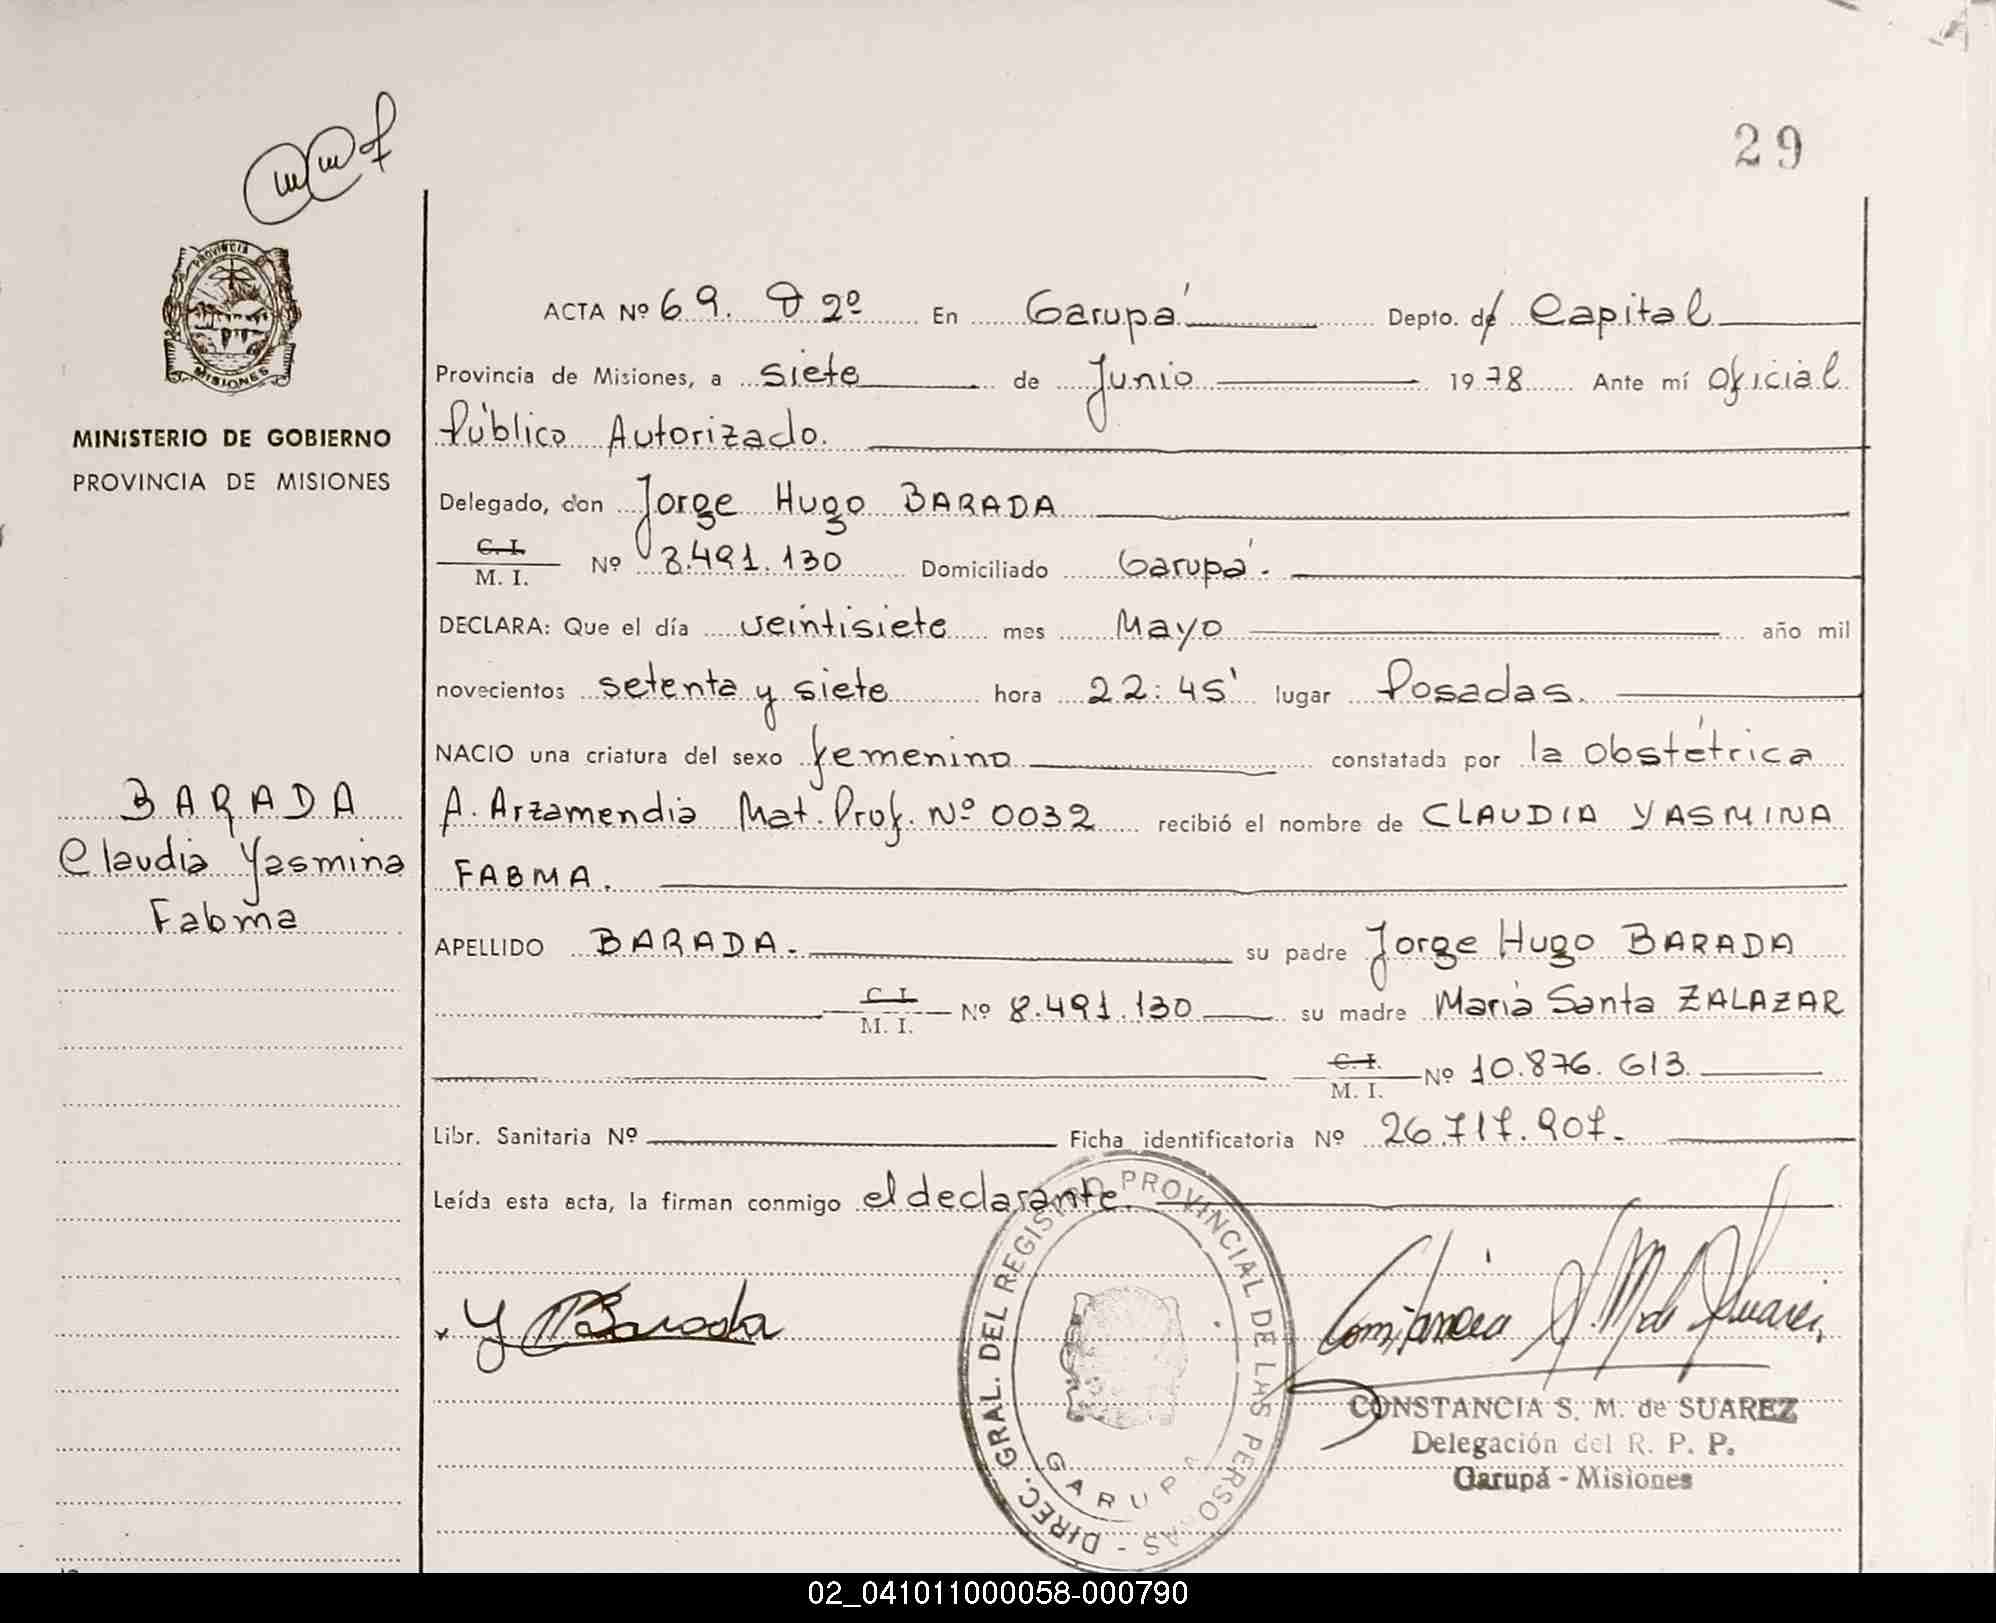 29
PROVINCIA
MISIONES
MINISTERIO DE GOBIERNO
PROVINCIA DE MISIONES
BARADA
Claudia Yasmina
Fabma
ACTA Nº 69. D 2º En Garupá Depto. de Capital
Provincia de Misiones, a siete de Junio 1978 Ante mí Oficial
Público Autorizado.
Delegado, don Jorge Hugo BARADA
C. I.
M. I. Nº 8.491.130 Domiciliado Garupá.
DECLARA: Que el día veintisiete mes Mayo año mil
novecientos setenta y siete hora 22:45' lugar Posadas.
NACIO una criatura del sexo femenino constatada por la obstétrica
A. Arzamendia Mat. Prof. Nº 0032 recibió el nombre de CLAUDIA YASMINA
FABMA.
APELLIDO BARADA. su padre Jorge Hugo BARADA
C. I.
M. I. Nº 8.491.130 su madre María Santa ZALAZAR
C. I.
M. I. Nº 10.876.613
Libr. Sanitaria Nº Ficha identificatoria Nº 26.717.907.
Leída esta acta, la firman conmigo el declarante.
DIREC. GRAL. DEL REGISTRO PROVINCIAL DE LAS PERSONAS -
GARUPA
Barada
Constancia S. M. de Suarez
CONSTANCIA S. M. de SUAREZ
Delegación del R. P. P.
Garupá - Misiones
02_041011000058-000790